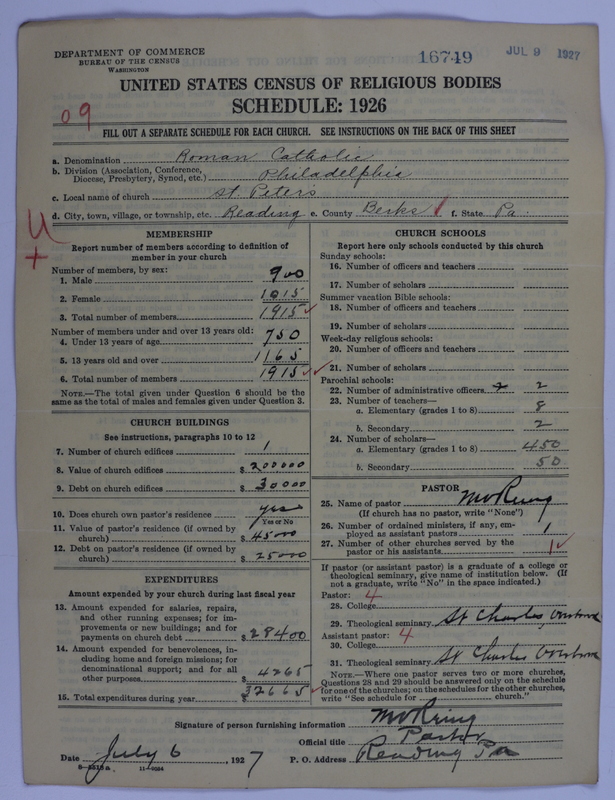 DEPARTMENT OF COMMERCE
BUREAU OF THE CENSUS
WASHINGTON
16749
JUL 9 1927
UNITED STATES CENSUS OF RELIGIOUS BODIES
SCHEDULE: 1926
09
FILL OUT A SEPARATE SCHEDULE FOR EACH CHURCH. SEE INSTRUCTIONS ON THE BACK OF THIS SHEET
a. Denomination Roman Catholic
b. Division (Association, Conference, Diocese, Presbytery, Synod, etc.) Philadelphia
c. Local name of church St Peters
d. City, town, village, or township, etc. Reading e. County Berks f. State Pa.
MEMBERSHIP
Report number of members according to definition of
member in your church
Number of members, by sex:
1. Male 900
2. Female 1015
3. Total number of members 1915
Number of members under and over 13 years old:
4. Under 13 years of age 750
5. 13 years old and over 1165
6. Total number of members 1915
NOTE.—The total given under Question 6 should be
the same as the total of males and females given under Question 3.
CHURCH BUILDINGS
See instructions, paragraphs 10 to 12
7. Number of church edifices 1
8. Value of church edifices $200000
9. Debt on church edifices $30000
10. Does church own pastor's residence yes
Yes or No
11. Value of pastor's residence (if owned by
church) $45000
12. Debt on pastor's residence (if owned by
church) $25000
EXPENDITURES
Amount expended by your church during last fiscal year
13. Amount expended for salaries, repairs,
and other running expenses; for im-
provements or new buildings; and for
payments on church debt $28400
14. Amount expended for benevolences, in-
cluding home and foreign missions; for
denominational support; and for all
other purposes 4265
15. Total expenditures during year $32665
CHURCH SCHOOLS
Report here only schools conducted by this church
Sunday schools:
16. Number of officers and teachers
17. Number of scholars
Summer vacation Bible schools:
18. Number of officers and teachers
19. Number of scholars
Week-day religious schools:
20. Number of officers and teachers
21. Number of scholars
Parochial schools:
22. Number of administrative officers 2
23. Number of teachers—
a. Elementary (grades 1 to 8) 8
b. Secondary 2
24. Number of scholars—
a. Elementary (grades 1 to 8) 450
b. Secondary 50
PASTOR
25. Name of pastor
(If church has no pastor, write "None")
26. Number of ordained ministers, if any, em-
ployed as assistant pastors 1
27. Number of other churches served by the
pastor or his assistants 1
If pastor (or assistant pastor) is a graduate of a college or
theological seminary, give name of institution below. (If
not a graduate, write "No" in the space indicated.)
Pastor: 4
28. College
29. Theological seminary St Charles, Overbrook
Assistant pastor: 4
30. College
31. Theological seminary St Charles Overbrook
NOTE.—Where one pastor serves two or more churches,
Questions 28 and 29 should be answered only on the schedule
for one of the churches; on the schedules for the other churches,
write "See schedule for church."
Signature of person furnishing information
Official title Pastor
Date July 6, 1927 P. O. Address Reading Pa